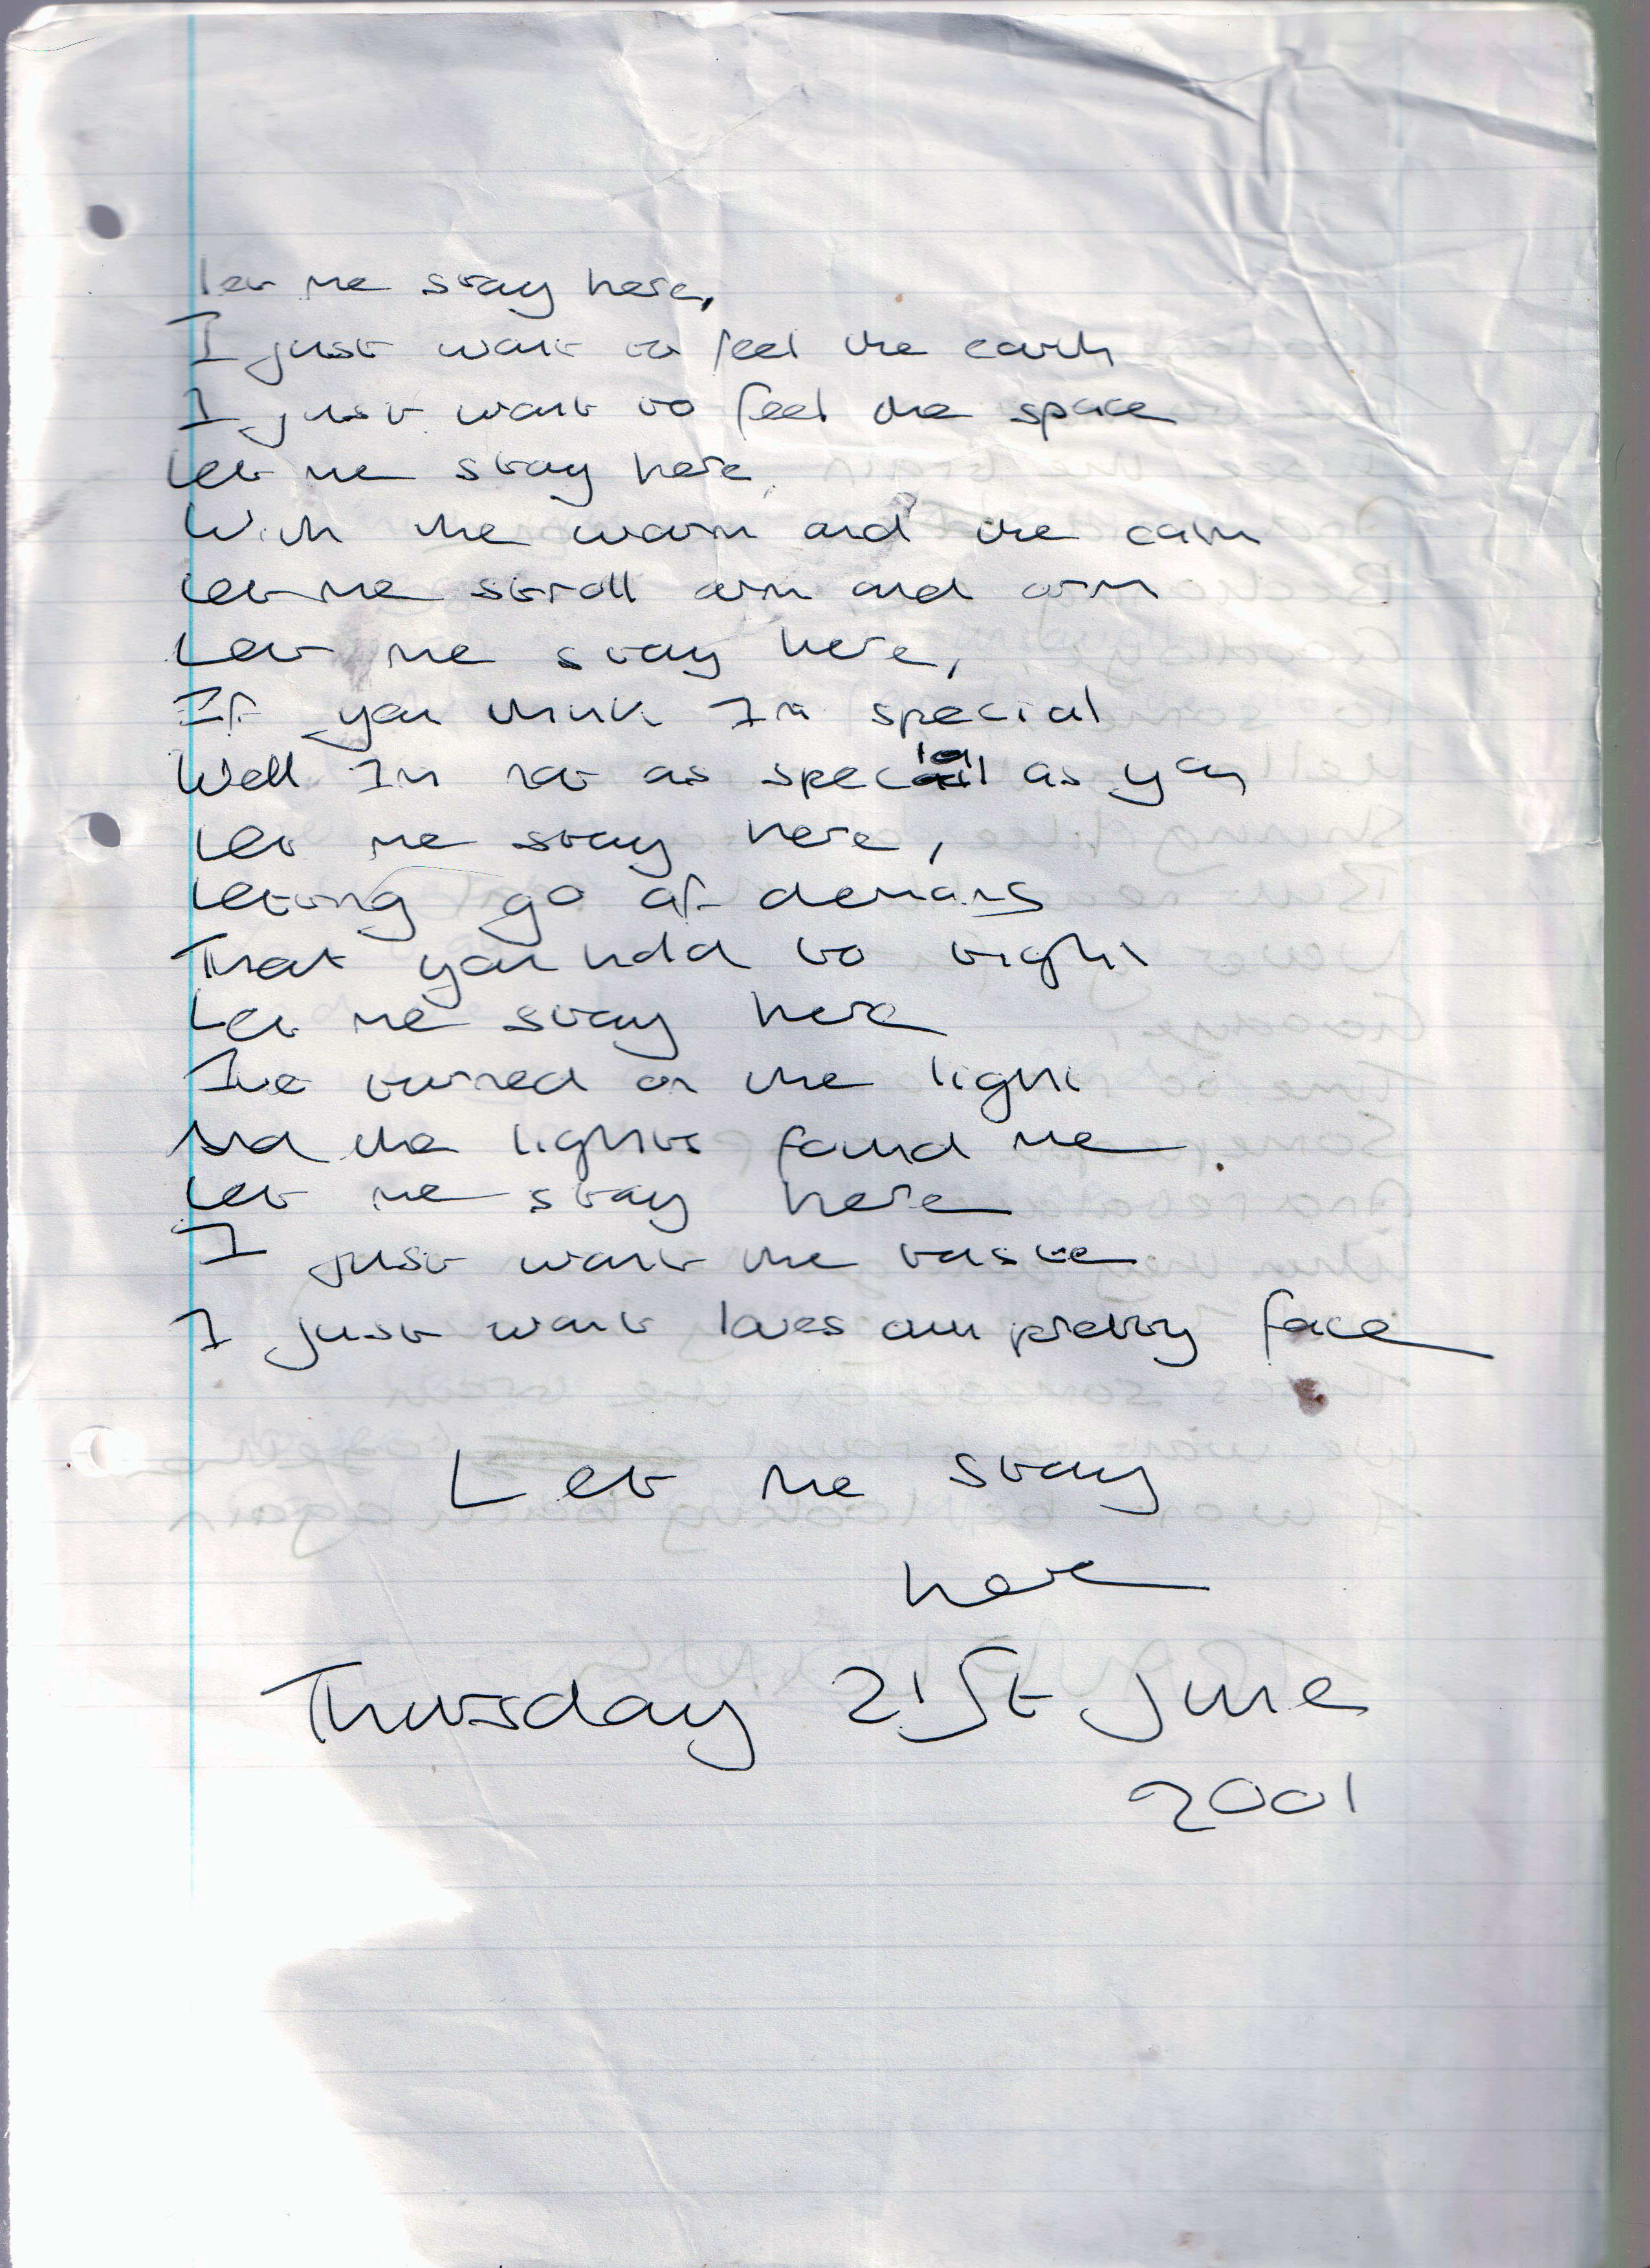 let me stay here,
I just want to feel the earth
I just want to feel the space
let me stay here
With the warm and the calm
let me stroll arm and arm
Let me stay here,
If you think Im special
Well Im not as special as you
Let me stay here,
Leting go of demons
That you hold to tight
Let me stay here
Ive turned on the light
And the lights found me
Let me stay here
I just want the taste
I just want loves own pretty face
Let me stay
here
Thursday 21st June
2001